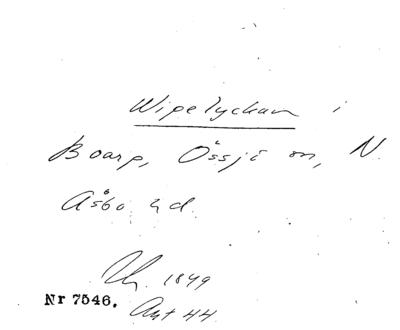 Wipelyckan i
Boarp, Össjö sn, N.
Åsbo hd.
1849
Nr 7546.
Akt 44